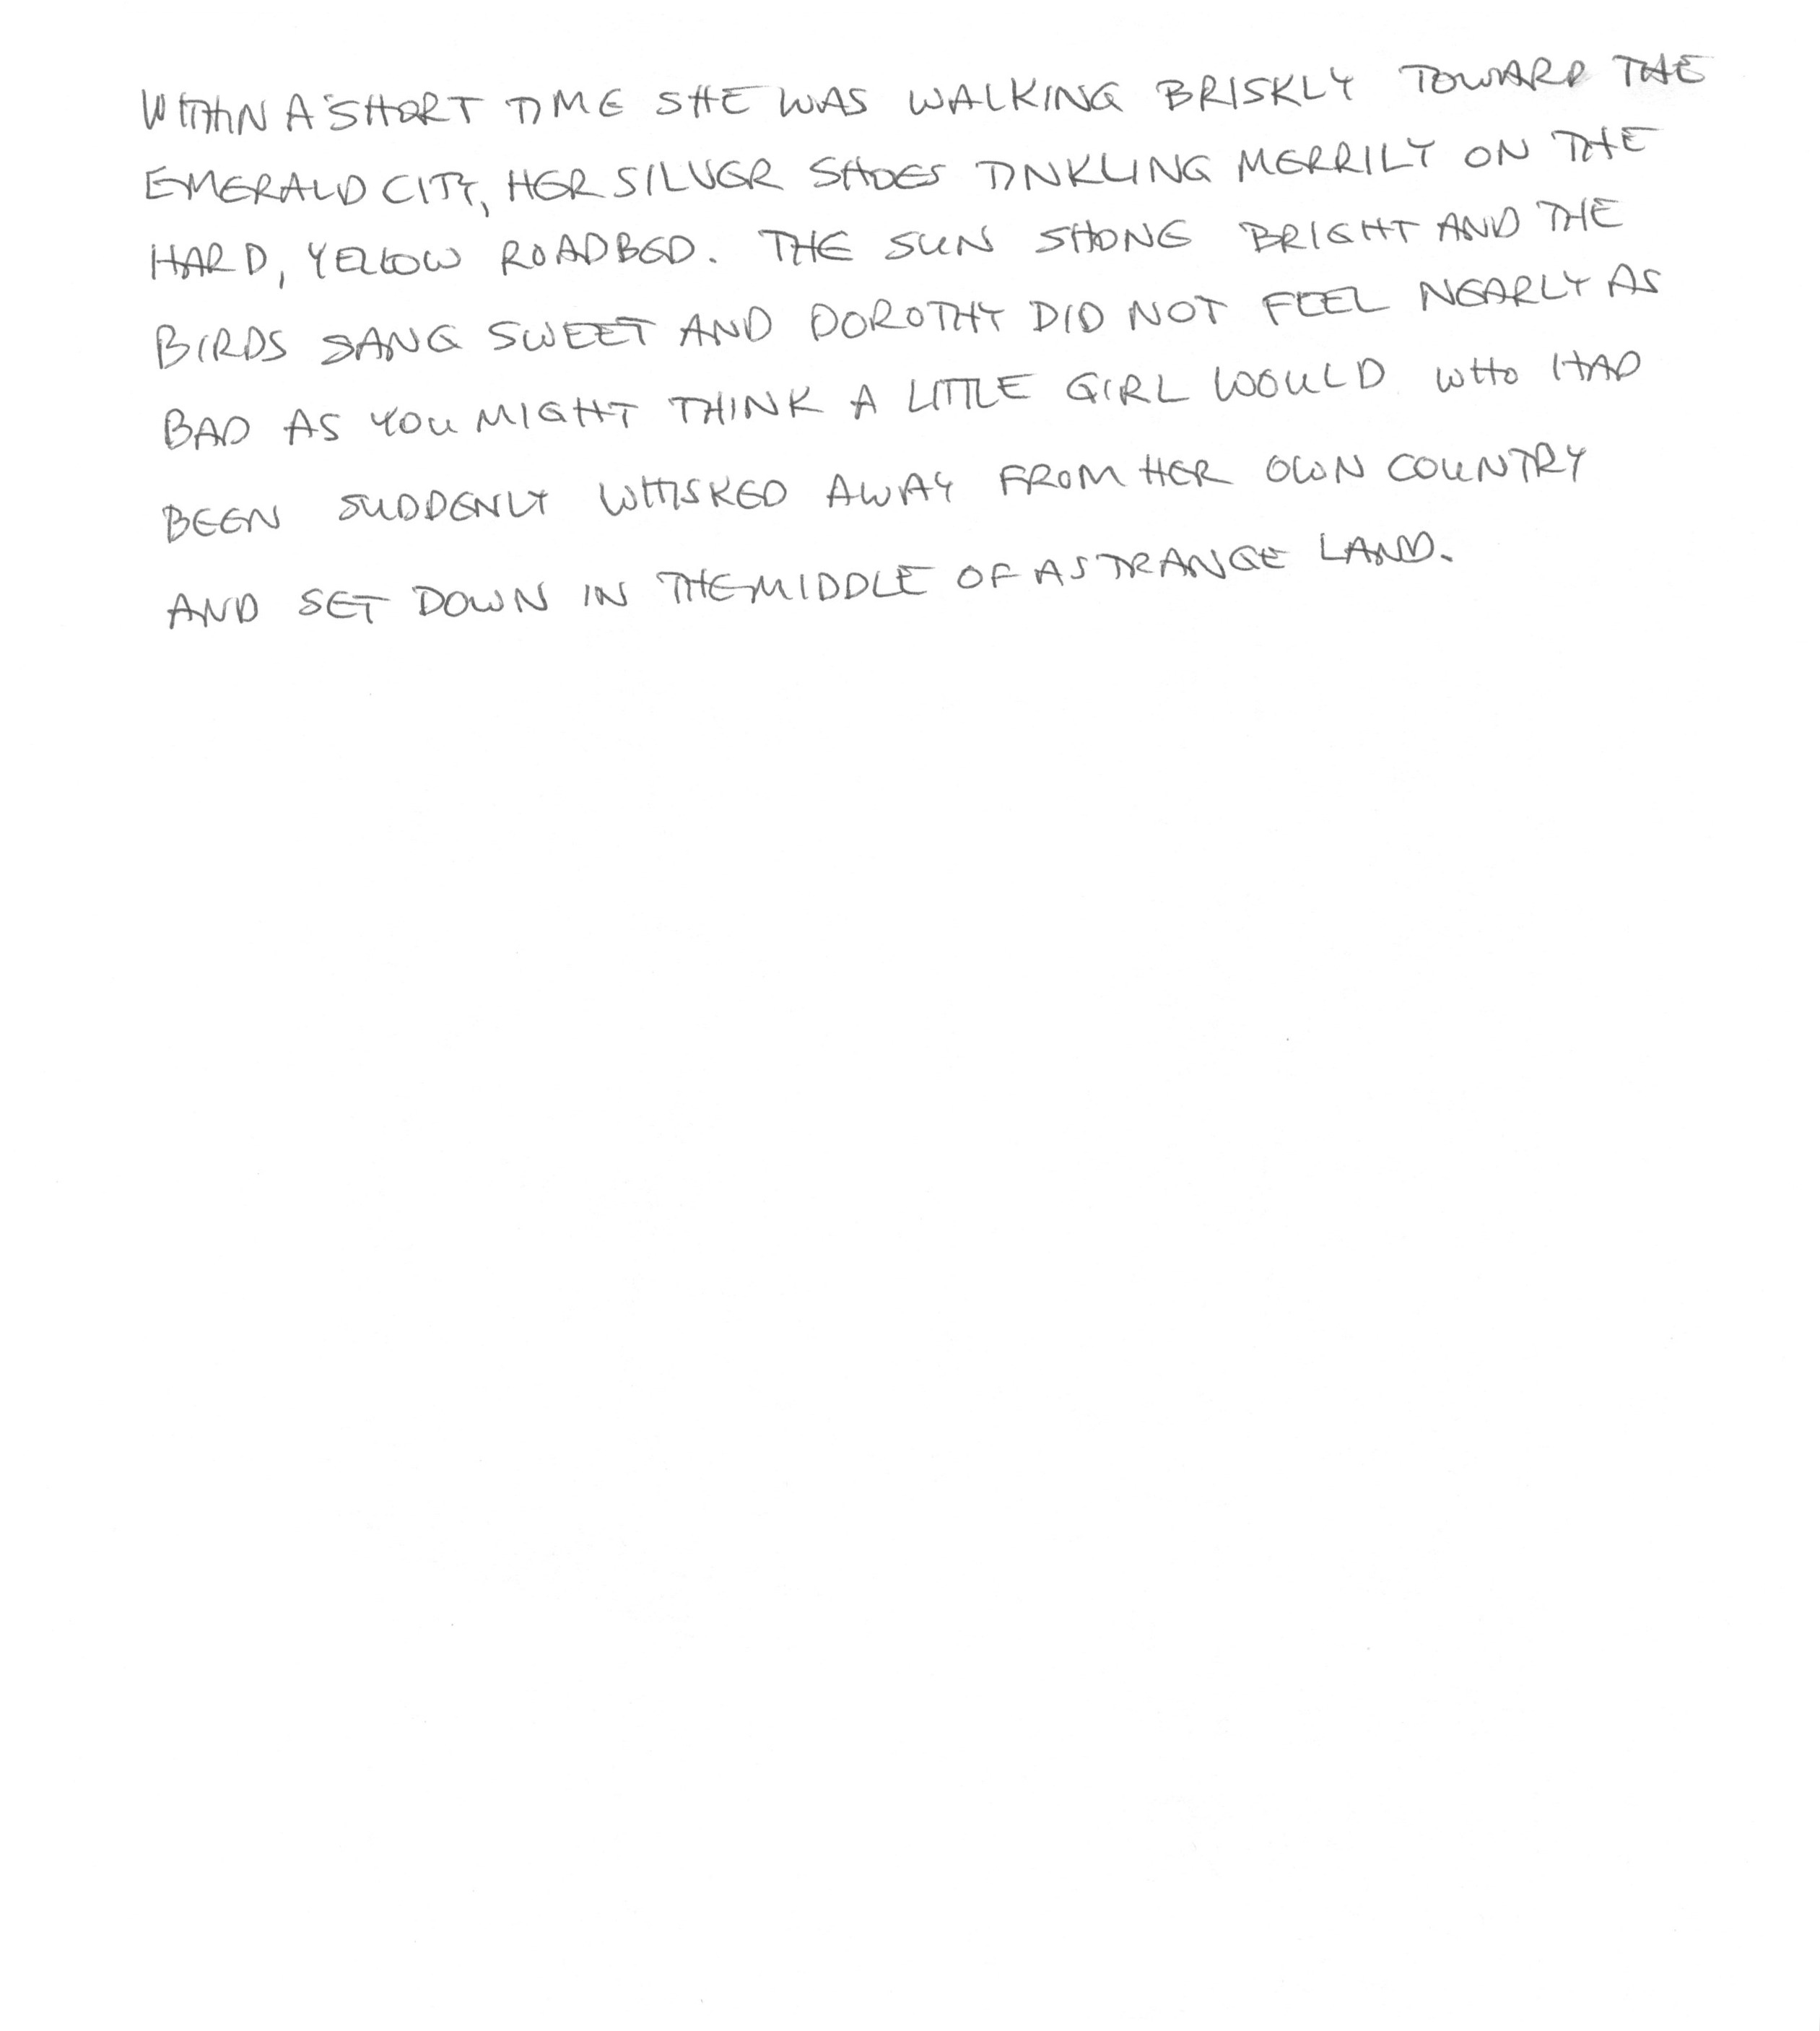 WITHIN A SHORT TIME SHE WAS WALKING BRISKLY TOWARD THE
EMERALD CITY, HER SILVER SHOES TINKLING MERRILY ON THE
HARD, YELLOW ROADBED. THE SUN SHONE BRIGHT AND THE
BIRDS SANG SWEET AND DOROTHY DID NOT FEEL NEARLY AS
BAD AS YOU MIGHT THINK A LITTLE GIRL WOULD WHO HAD
BEEN SUDDENLY WHISKED AWAY FROM HER OWN COUNTRY
AND SET DOWN IN THE MIDDLE OF A STRANGE LAND.